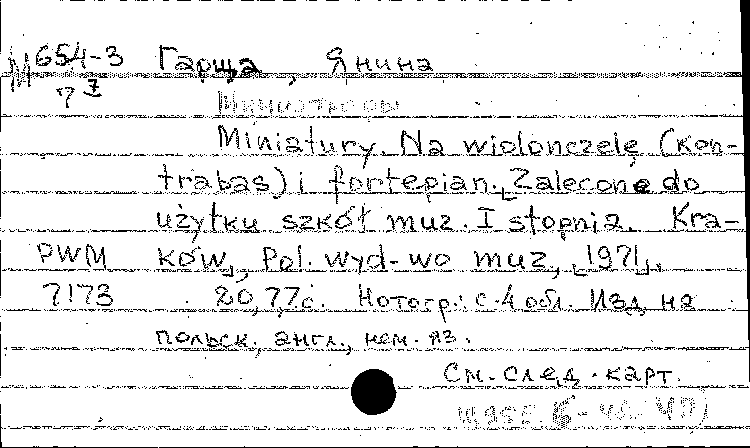 М 654-3 Гарща, Янина
7
Миниатюры
Miniatury. Na wiolonczelę (kon-
trabas) i fortepian. Zalecone do
użytku szkół muz. I stopnia. Kra-
PWM ków, Pol. wyd-wo muz, [1971].
7173 20, 77 с. Нотогр.: с. 4 обл. Изд. на
польск., англ., нем. яз.
См. след. карт.